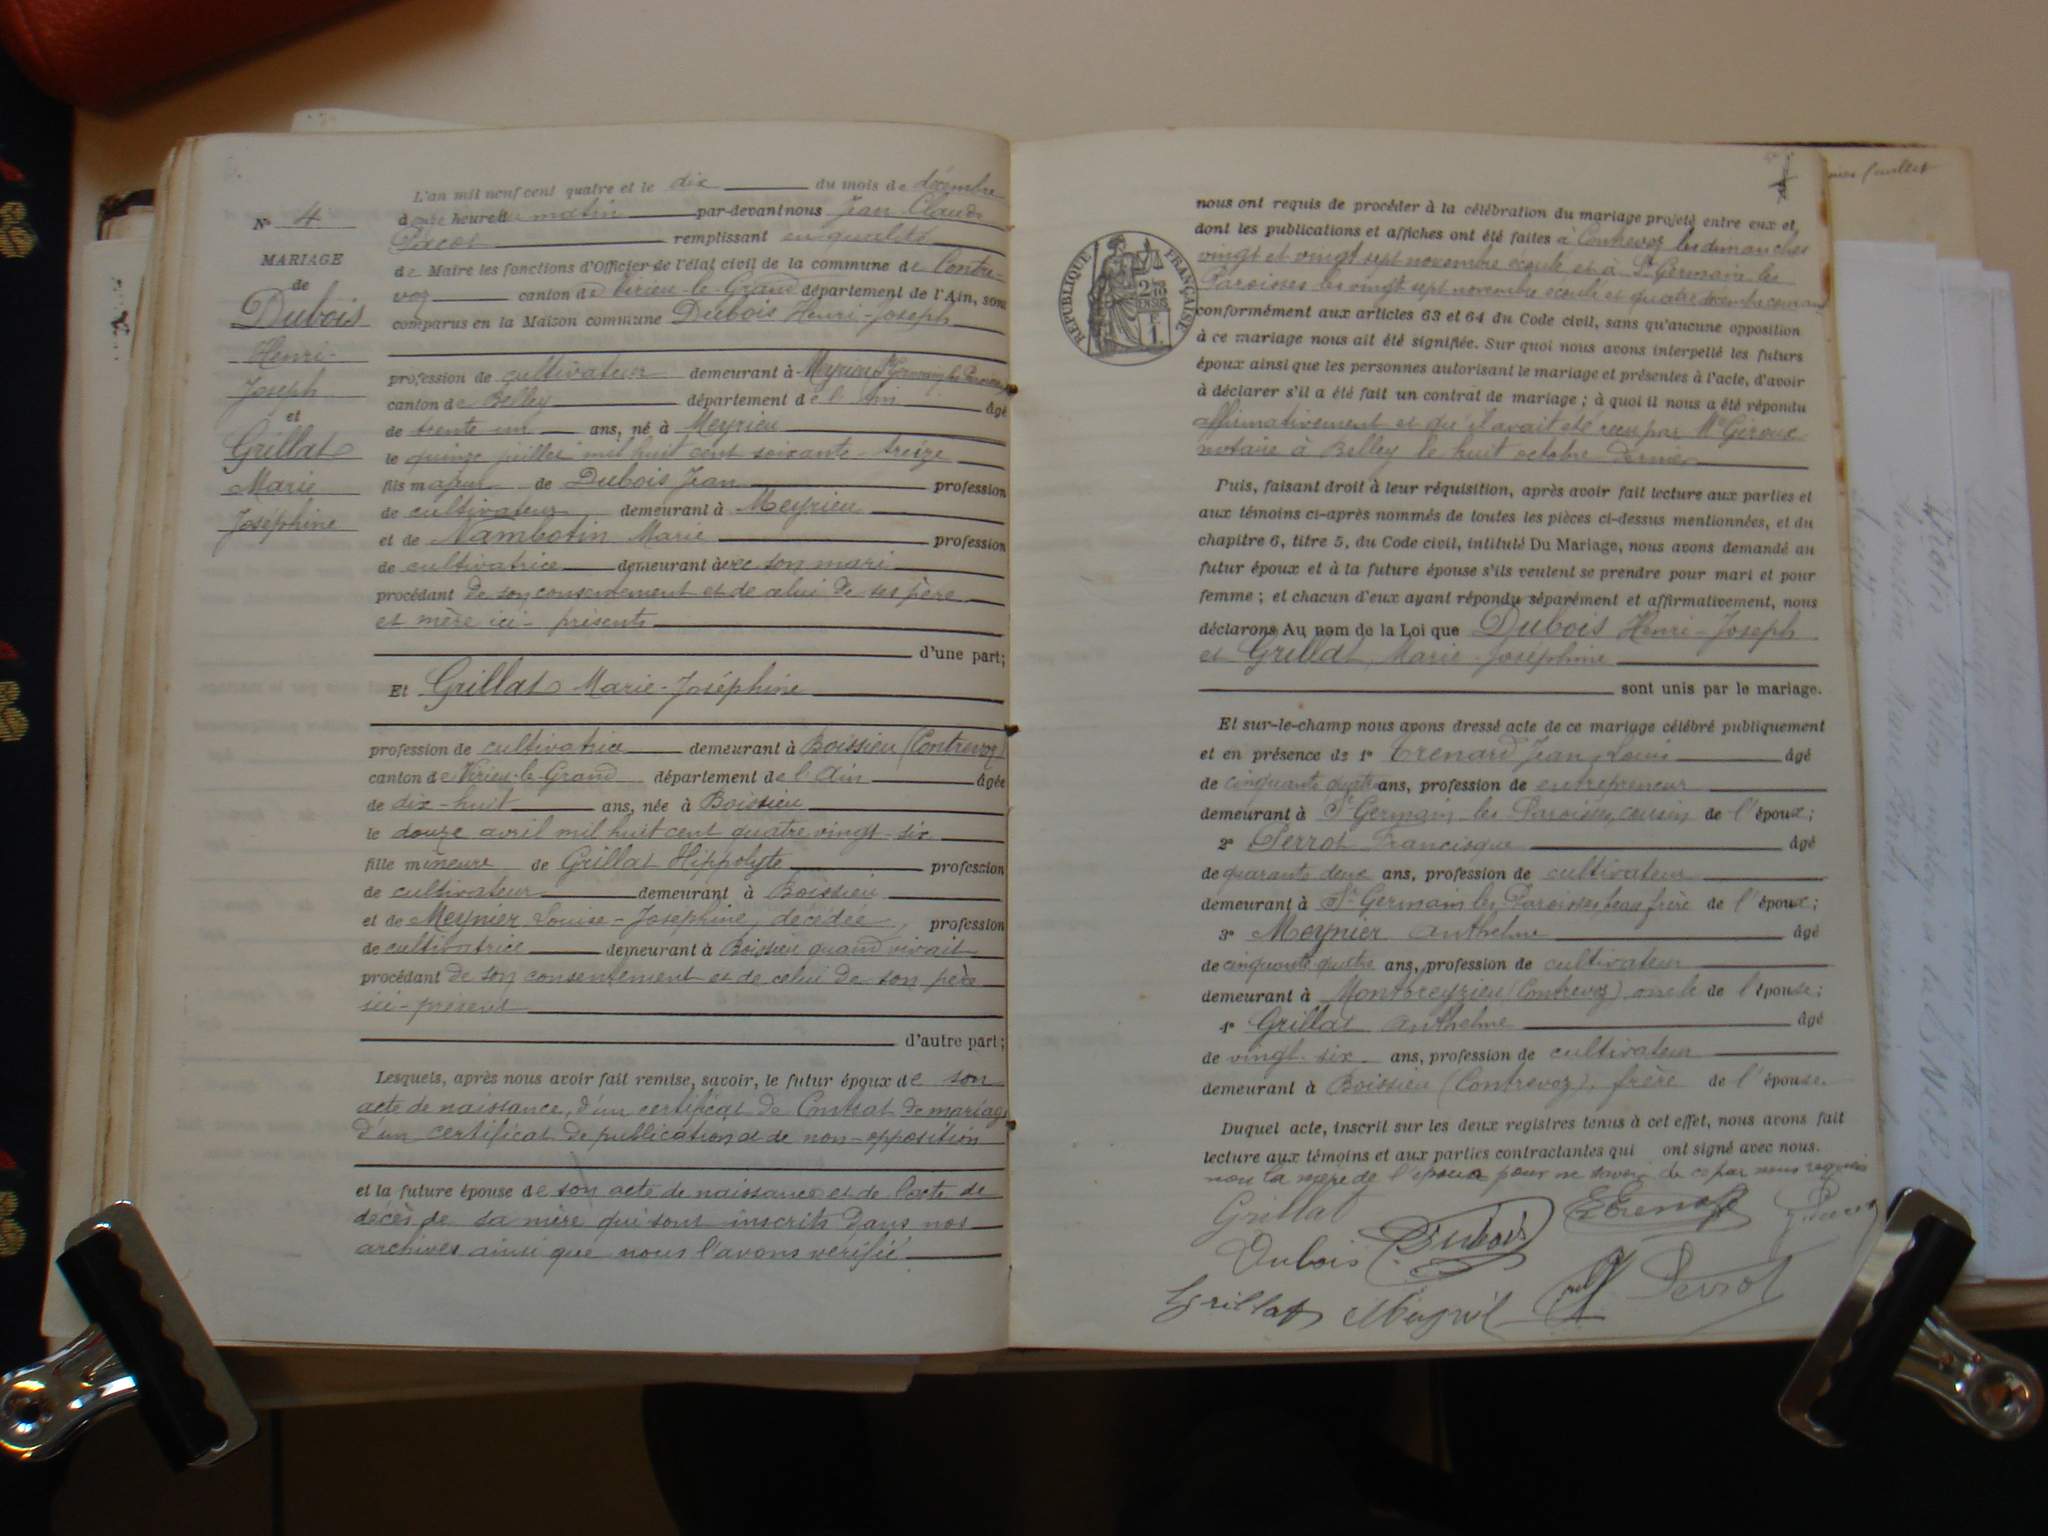 N° 4.
MARIAGE
de
Dubois
Henri-
Joseph
et
Grillat
Marie
Joséphine
L'an mil neuf cent quatre et le dix du mois de décembre
à onze heure du matin par-devant nous Jean Claude
remplissant en qualité
de Maire les fonctions d'Officier de l'état civil de la commune de Contre-
voz canton de Virieu-le-Grand département de l'Ain, sont
comparus en la Maison commune Dubois Henri-Joseph
profession de cultivateur demeurant à Meyrieu St Germain les Paroisses
canton de Belley département de l'Ain âgé
de trente un ans, né à Meyrieu
le quinze juillet mil huit cent soixante-treize
fils majeur de Dubois Jean profession
de cultivateur demeurant à Meyrieu
et de Nambotin Marie profession
de cultivatrice demeurant avec son mari
procédant de son consentement et de celui de ses père
et mère ici-présents
d'une part;
Et Grillat Marie-Joséphine
profession de cultivatrice demeurant à Boissieu (Contrevoz)
canton de Virieu-le-Grand département de l'Ain âgée
de dix-huit ans, née à Boissieu
le douze avril mil huit cent quatre vingt-six
fille mineure de Grillat Hippolyte profession
de cultivateur demeurant à Boissieu
et de Meynier Louise-Joséphine, décédée, profession
de cultivatrice demeurant à Boissieu quand vivait
procédant de son consentement et de celui de son père
ici-présent
d'autre part;
Lesquels, après nous avoir fait remise, savoir, le futur époux de son
acte de naissance, d'un certificat de Contrat de mariage
d'un certificat de publication et de non-opposition
et la future épouse de son acte de naissance et de l'acte de
décès de sa mère qui sont inscrits dans nos
archives ainsi que nous l'avons vérifié
RÉPUBLIQUE FRANÇAISE
nous ont requis de procéder à la célébration du mariage projeté entre eux et
dont les publications et affiches ont été faites à Contrevoz les dimanches
vingt et vingt sept novembre écoulé et à St Germain les
Paroisses les vingt sept novembre écoulé et quatre décembre courant
conformément aux articles 63 et 64 du Code civil, sans qu'aucune opposition
à ce mariage nous ait été signifiée. Sur quoi nous avons interpellé les futurs
époux ainsi que les personnes autorisant le mariage et présentes à l'acte, d'avoir
à déclarer s'il a été fait un contrat de mariage; à quoi il nous a été répondu
affirmativement et qu'il avait été reçu par Me
notaire à Belley le huit octobre dernier
Puis, faisant droit à leur réquisition, après avoir fait lecture aux parties et
aux témoins ci-après nommés de toutes les pièces ci-dessus mentionnées, et du
chapitre 6, titre 5, du Code civil, intitulé Du Mariage, nous avons demandé au
futur époux et à la future épouse s'ils veulent se prendre pour mari et pour
femme; et chacun d'eux ayant répondu séparément et affirmativement, nous
déclarons Au nom de la Loi que Dubois Henri-Joseph
et Grillat Marie-Joséphine
sont unis par le mariage.
Et sur-le-champ nous avons dressé acte de ce mariage célébré publiquement
et en présence de 1° Trenard Jean Louis âgé
de cinquante quatre ans, profession de entrepreneur
demeurant à St Germain les Paroisses, cousin de l'époux;
2° Perrot Francisque âgé
de quarante deux ans, profession de cultivateur
demeurant à St Germain les Paroisses, beau frère de l'époux;
3° Meynier Anthelme âgé
de cinquante quatre ans, profession de cultivateur
demeurant à Montbreyzieu (Contrevoz) oncle de l'épouse;
4° Grillat Anthelme âgé
de vingt-six ans, profession de cultivateur
demeurant à Boissieu (Contrevoz), frère de l'épouse.
Duquel acte, inscrit sur les deux registres tenus à cet effet, nous avons fait
lecture aux témoins et aux parties contractantes qui ont signé avec nous.
non la mère de l'époux pour ne savoir de ce par nous requise
Grillat Dubois
Dubois
Grillat Perrot